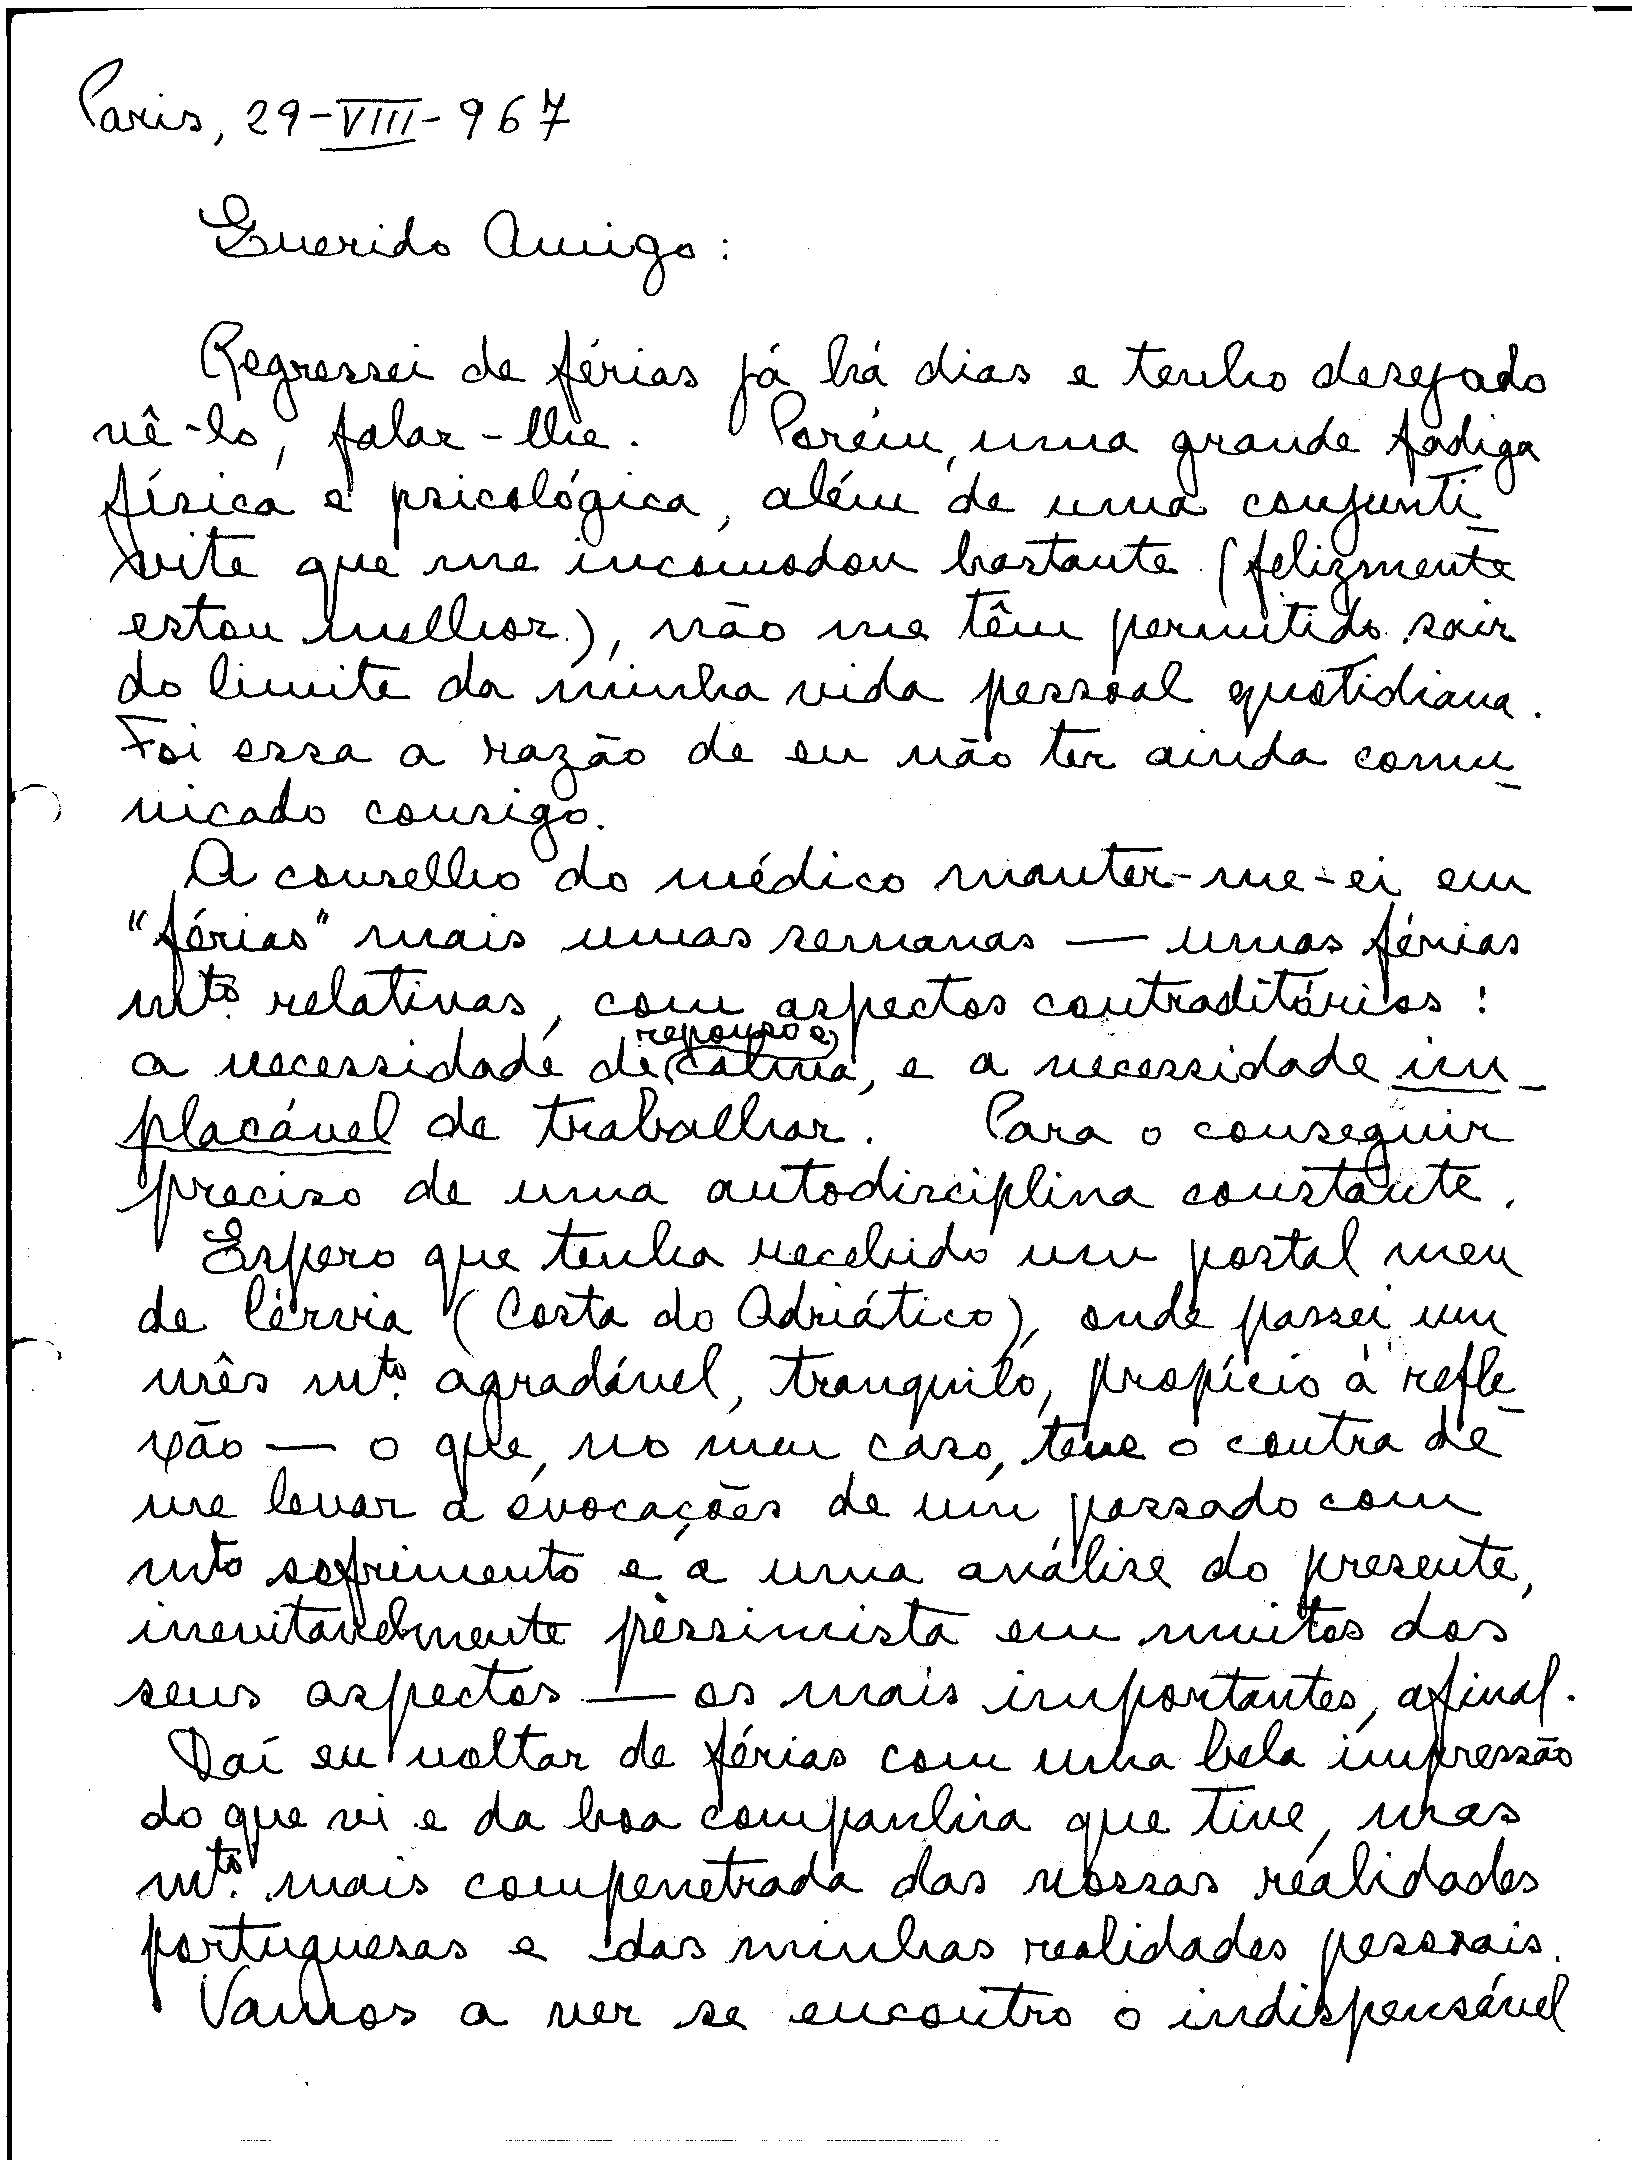 Paris, 29-VIII-967
Querido Amigo:
Regressei de férias já há dias e tenho desejado
vê-lo, falar-lhe. Porém, uma grande fadiga
física e psicológica, além de uma conjunti-
vite que me incomodou bastante (felizmente
estou melhor), não me têm permitido sair
do limite da minha vida pessoal quotidiana.
Foi essa a razão de eu não ter ainda comu-
nicado consigo.
A conselho do médico manter-me-ei em
"férias" mais umas semanas — umas férias
mtº. relativas, com aspectos contraditórios:
a necessidade de repouso e calma, e a necessidade im-
placável de trabalhar. Para o conseguir
preciso de uma autodisciplina constante.
Espero que tenha recebido um postal meu
de Cérvia (Costa do Adriático), onde passei um
mês mtº. agradável, tranquilo, propício à refle-
xão — o que, no meu caso, teve o contra de
me levar a evocações de um passado com
mtº sofrimento e a uma análise do presente,
inevitavelmente pessimista em muitos dos
seus aspectos — os mais importantes, afinal.
Daí eu voltar de férias com uma bela impressão
do que vi e da boa companhia que tive, mas
mtº. mais compenetrada das nossas realidades
portuguesas e das minhas realidades pessoais.
Vamos a ver se encontro o indispensável